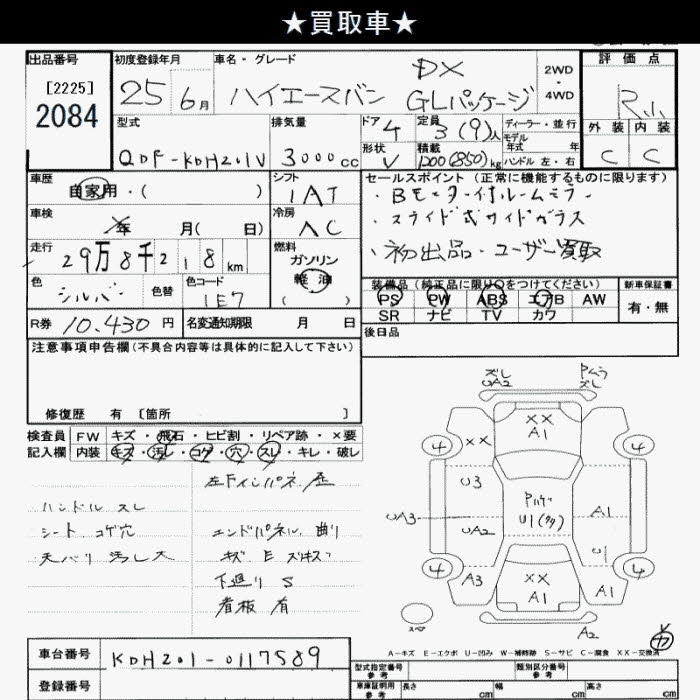 ★買取車★
出品番号 初度登録年月 車名・グレード 評価点
[2225]
2084
25 6月 ハイエースバン DX GLパッケージ 2WD・4WD R小
型式 排気量 ドア 4 定員 3(9)人 ディーラー・並行 外装 内装
モデル年式 年式
QDF-KDH201V 3000cc 形状 V 積載 1200(850)kg ハンドル 左・右 C C
車歴 シフト セールスポイント(正常に機能するものに限ります)
自家用・( ) IAT ・BモニターイナルームミラI
車検 年 月( 日) 冷房 AC ・スライド式サイドガラス
走行 29万8千218km 燃料 ガソリン 軽油 ( ) ・初出品・ユーザー買取
色 シルバー 色替 色コード 1E7
装備品(純正品に限り○をつけてください) 新車保証書
PS PW ABS エアB AW 有・無
SR ナビ TV カワ
R券 10.430円 名変通知期限 月 日
後日品
注意事項申告欄(不具合内容等は具体的に記入して下さい)
修復歴 有 〔箇所 〕
検査員 FW キズ・飛石・ヒビ割・リペア跡・×要
記入欄 内装 キズ・汚レ・コゲ・穴・スレ・キレ・破レ
左下インパネ
ハンドル スレ
シート コゲ穴 エンドパネル 曲り
天バリ 汚レ大 キズ E
下廻り S
看板 有
ズレ UA2 Pムラ ズレ
XX A1
4 XX 4
U3
Pハゲ U1(多) A1
UA3 UA2
U1
4 A3 XX A1 A1 4
A2
A-キズ E-エクボ U-凹み W-補修跡 S-サビ C-腐食 XX-交換済
車台番号 KDH201-0117589
登録番号
型式指定番号 参考 類別区分番号 参考
車庫証明用 参考 長さ cm 幅 cm 高さ cm